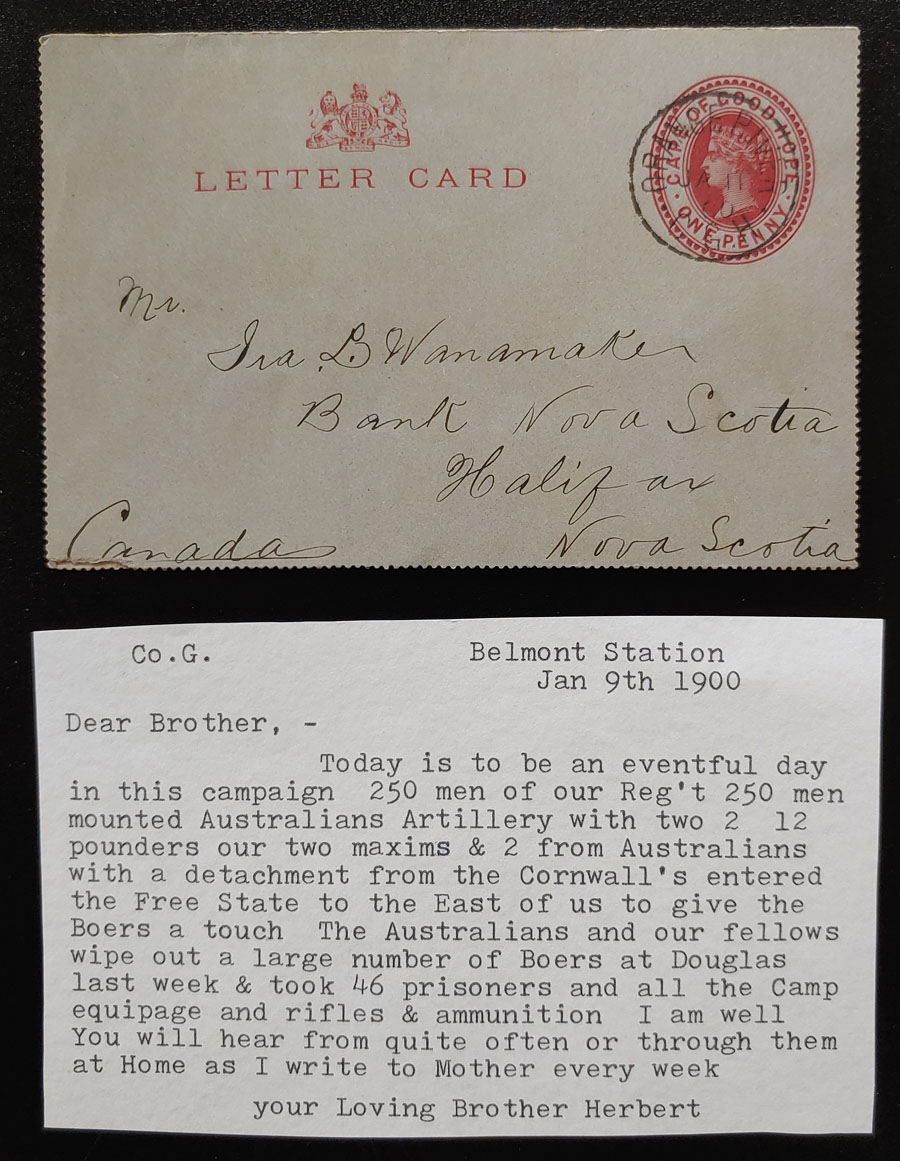 LETTER CARD
CAPE OF GOOD HOPE
ONE PENNY
ORANGE RIVER
JA 11
Mr.
Ira B Wanamaker
Bank Nova Scotia
Halifax
Canada Nova Scotia
Co.G. Belmont Station
Jan 9th 1900
Dear Brother, -
Today is to be an eventful day
in this campaign 250 men of our Reg't 250 men
mounted Australians Artillery with two 2 12
pounders our two maxims & 2 from Australians
with a detachment from the Cornwall's entered
the Free State to the East of us to give the
Boers a touch The Australians and our fellows
wipe out a large number of Boers at Douglas
last week & took 46 prisoners and all the Camp
equipage and rifles & ammunition I am well
You will hear from quite often or through them
at Home as I write to Mother every week
your Loving Brother Herbert